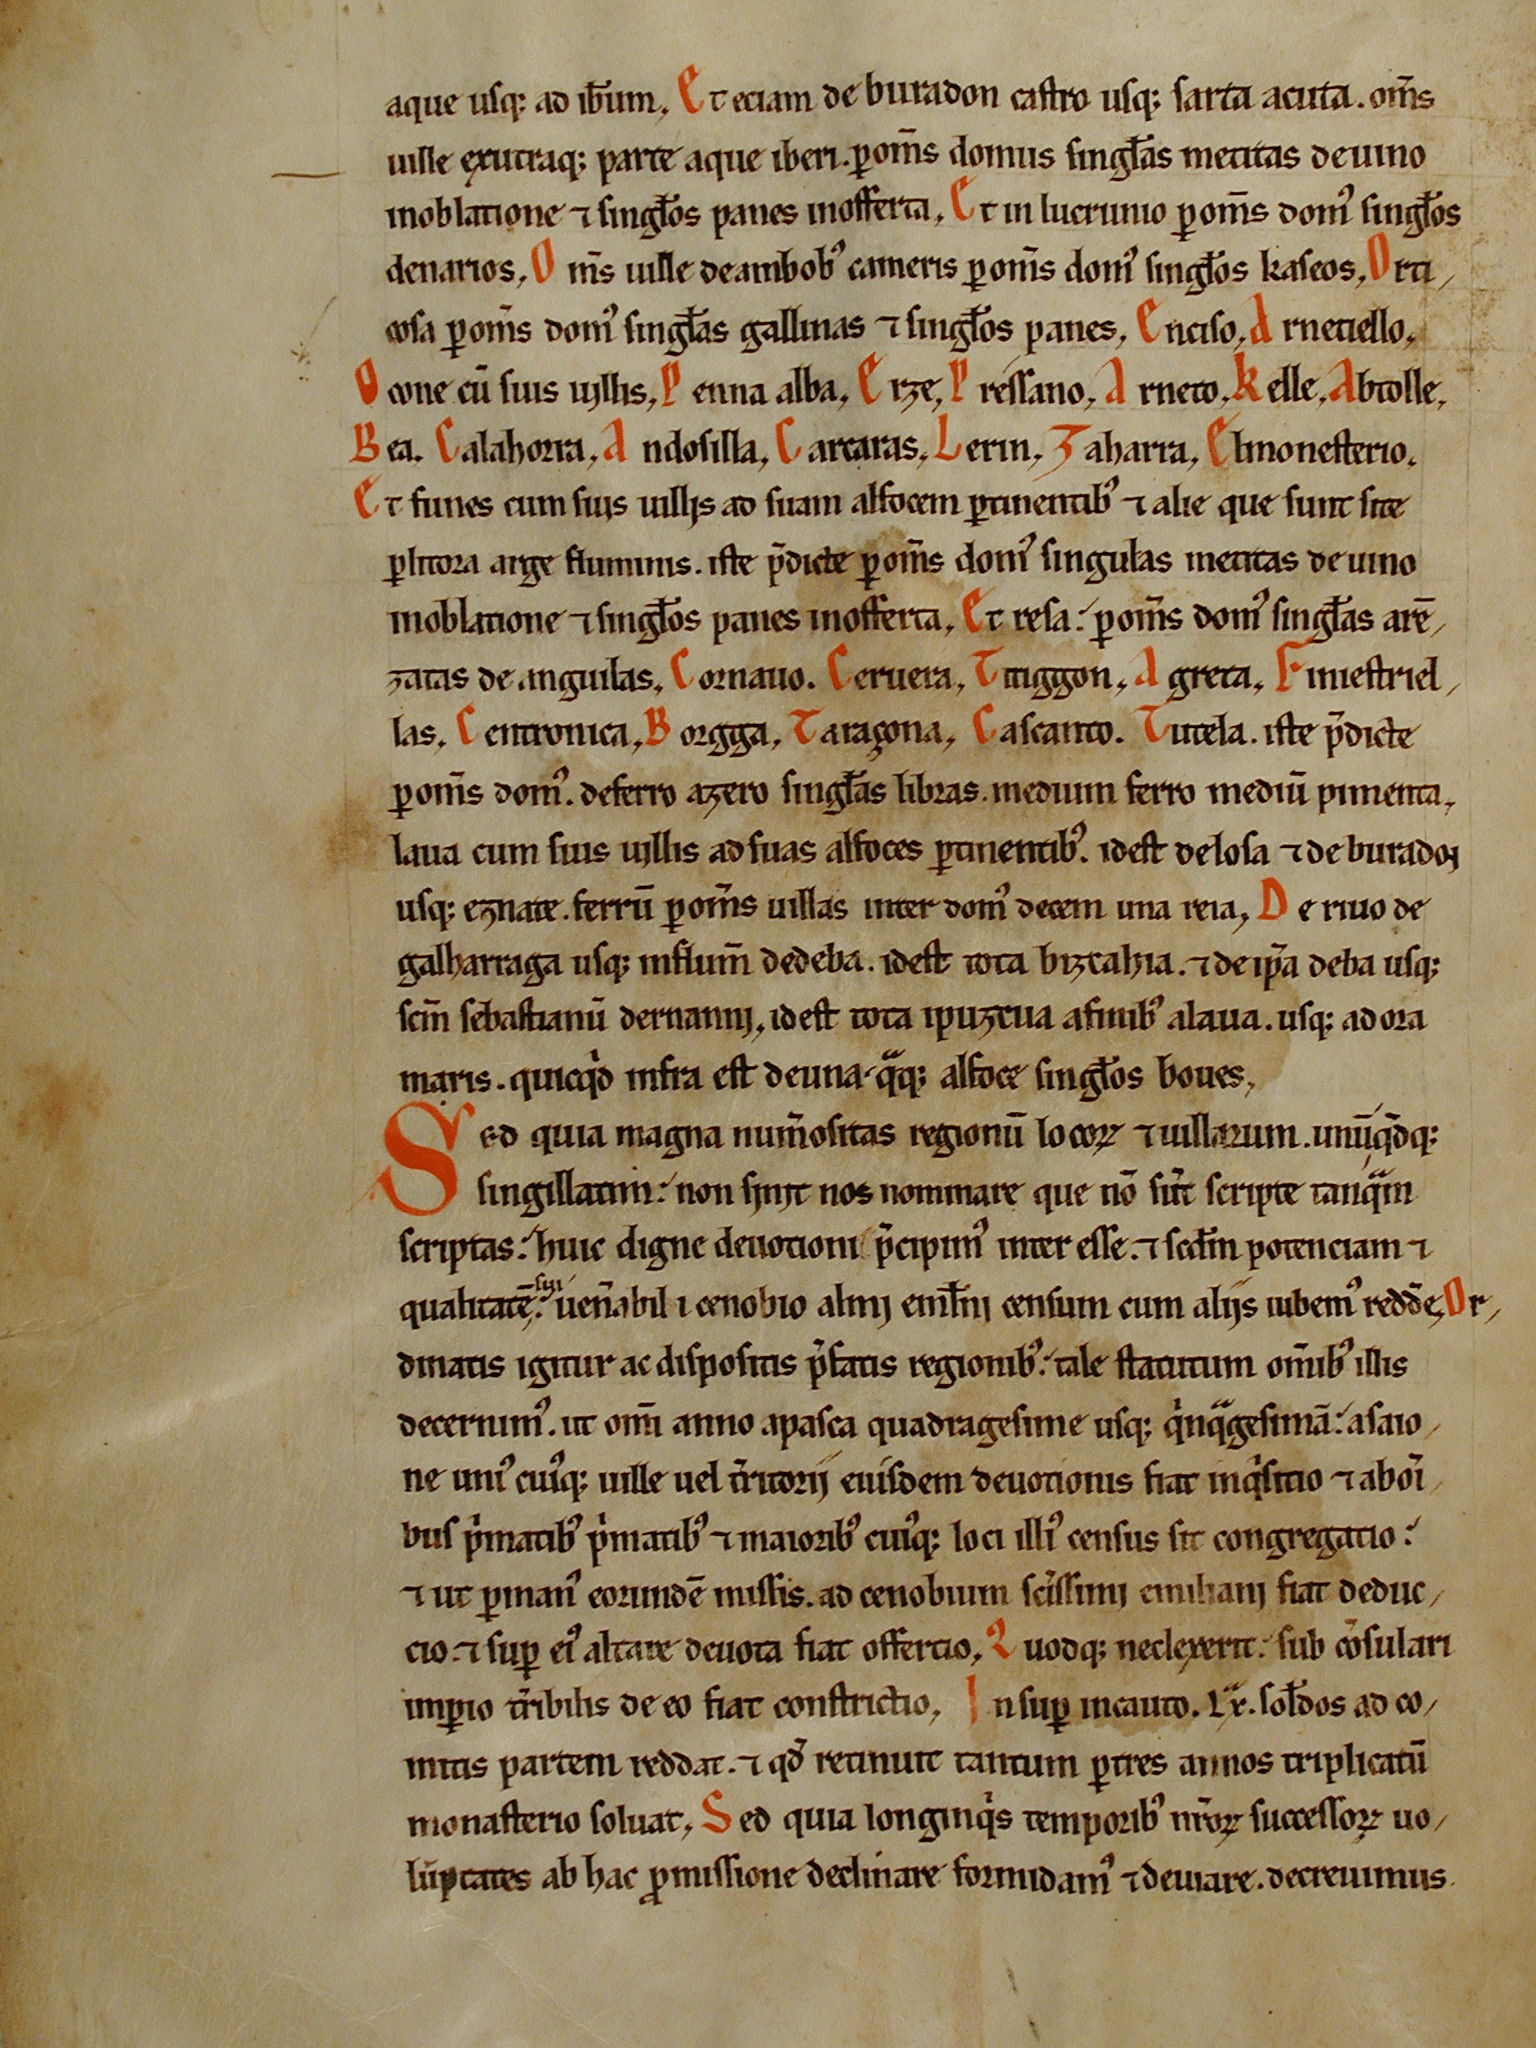 aque usq; ad ib̅um. Et eciam de buradon castro usq; sarta acuta. om̅s
uille exutraq; parte aque iberi. ꝑom̅s domus singl̅as metitas deuino
inoblatione ⁊ singl̅os panes inofferta. Et in lucrunio ꝑom̅s domꝰ singl̅os
denarios. Om̅s uille deambobꝰ cameris ꝑom̅s domꝰ singl̅os kaseos. Orti
cosa ꝑom̅s domꝰ singl̅as gallinas ⁊ singl̅os panes. Enciso. Arnetiello.
Ocone cū suis uillis. Penna alba. Erze. Pressano. Arneto. Kelle. Abtolle.
Bea. Calahorra. Andosilla. Carcaras. Lerin. Zaharra. Elmonesterio.
Et funes cum suis uillis ad suam alfocem ꝑtinentibꝰ ⁊ alie que sunt site
ꝑlitora arge fluminis. iste p̅dicte ꝑom̅s domꝰ singulas metitas deuino
inoblatione ⁊ singl̅os panes inofferta. Et resa: ꝑom̅s domꝰ singl̅as arē
zatas de anguilas. Cornauo. Ceruera. Titiggon. Agreta. Finiestriel
las. Centronica. Borgga. Taraçona. Cascanto. Tutela. iste p̅dicte
ꝑom̅s domꝰ. deferro azero singl̅as libras. medium ferro mediū pimenta.
laua cum suis uillis adsuas alfoces ꝑtinentibꝰ. idest delosa ⁊ de buradon
usq; eznate. ferrū ꝑom̅s uillas inter domꝰ decem una reia. De riuo de
galharraga usq; influm̅ dedeba. idest tota bizcahia. ⁊ de ip̅a deba usq;
scm̅ sebastianū dernanni. idest tota ipuzcua afinibꝰ alaua. usq; ad ora
maris. quicqͥd infra est deuna qͣq; alfoce singl̅os boues.
Sed quia magna num̅ositas regionū locoꝝ ⁊ uillarum. unūqd̅q;
singillatim: non sinit nos nominare que nō sūt scripte tanqͣm
scriptas: huic digne deuotioni p̅cipimꝰ interesse. ⁊ scdm̅ potenciam ⁊
qualitatē sui: uen̅abili cenobio almi emil̅ni censum cum aliis iubemꝰ redde̅. Or
dinatis igitur ac dispositis p̅fatis regionibꝰ: tale statutum om̅ibꝰ illis
decernimꝰ. ut omi̅ anno apasca quadragesime usq; qͥnqͣgesimā: asaio
ne uniꝰ cuiꝰq; uille uel t̅ritorii eiusdem deuotionis fiat inqͥsitio ⁊ aboi̅
bus pͥmatibꝰ pͥmatibꝰ ⁊ maioribꝰ cuiꝰq; loci illiꝰ census sit congregatio:
⁊ ut ꝑmanꝰ eorundē missis. ad cenobium sc̅issimi emiliani fiat deduc
cio. ⁊ suꝑ eiꝰ altare deuota fiat offertio. Quodq; neclexerit: sub cōsulari
imꝑio t̅ribilis de eo fiat constrictio. Insuꝑ incauto. Lx. sol̅dos ad co
mitis partem reddat. ⁊ qd̅ retinuit tantum ꝑtres annos triplicatū
monasterio soluat. Sed quia longinqͥs temporibꝰ nr̅oꝝ successoꝝ uo
lūptates ab hac ꝓmissione declinare formidamꝰ ⁊ deuiare. decreuimus